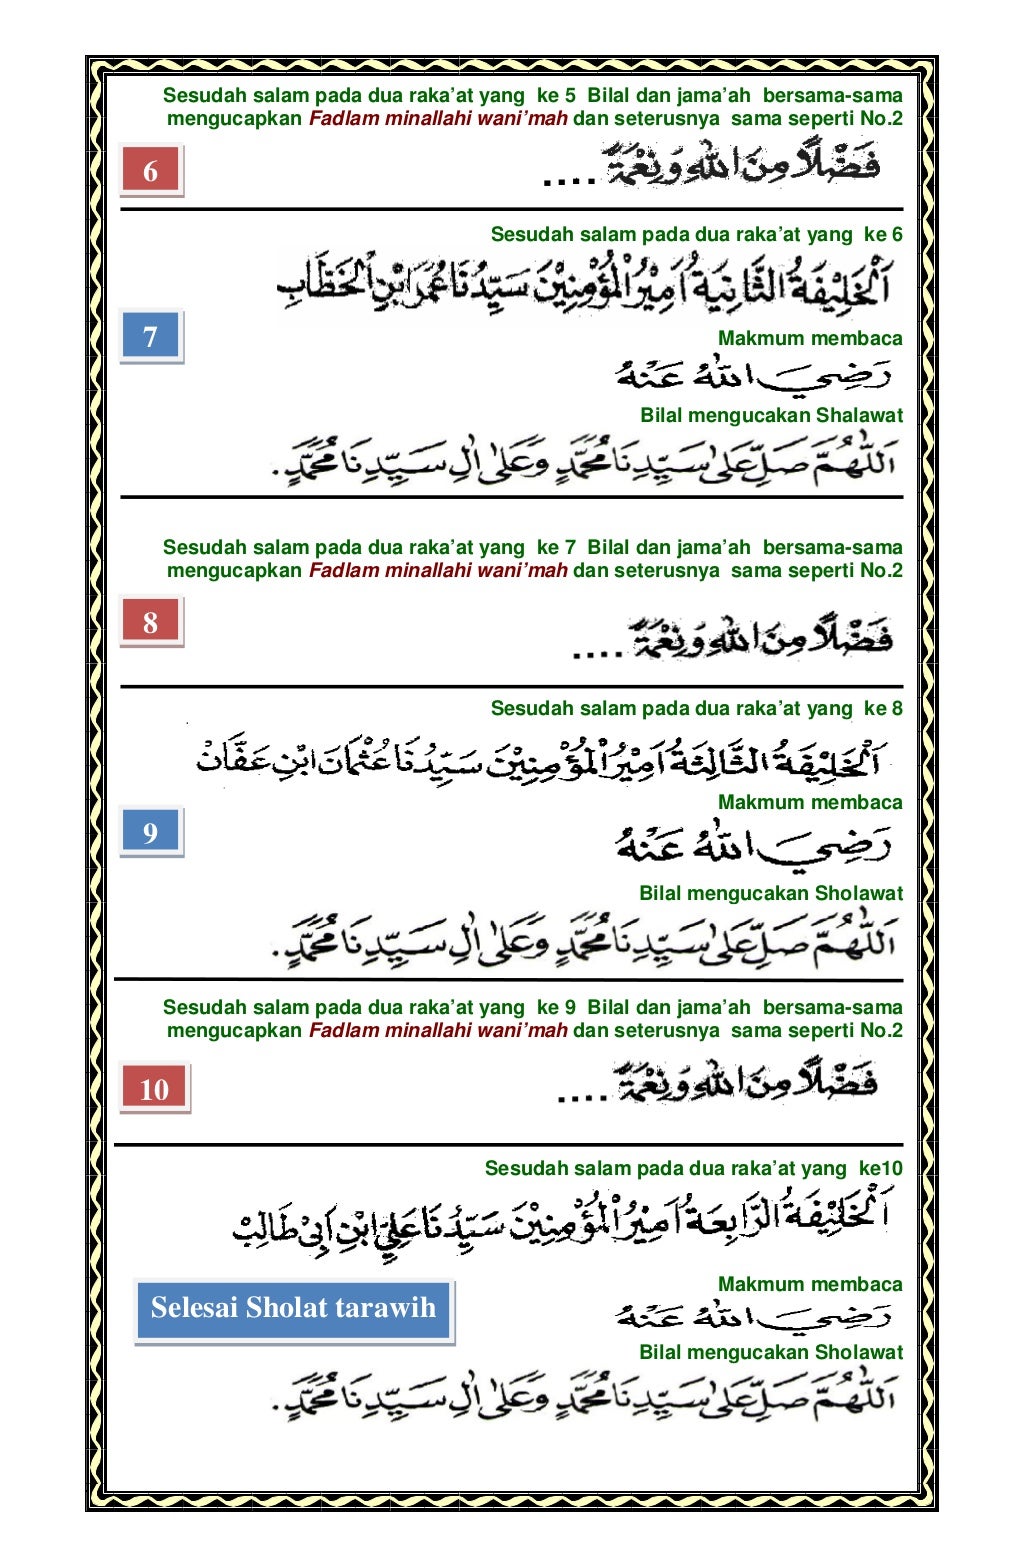 Sesudah salam pada dua raka’at yang ke 5 Bilal dan jama’ah bersama-sama
mengucapkan Fadlam minallahi wani’mah dan seterusnya sama seperti No.2
6
فَضْلًا مِنَ اللهِ وَنِعْمَةً ....
Sesudah salam pada dua raka’at yang ke 6
اَلْخَلِيْفَةُ الثَّانِيَةُ اَمِيْرُ الْمُؤْمِنِيْنَ سَيِّدُنَا عُمَرَ ابْنِ الْخَطَّابِ
7
Makmum membaca
رَضِيَ اللهُ عَنْهُ
Bilal mengucakan Shalawat
اَللّٰهُمَّ صَلِّ عَلٰى سَيِّدِنَا مُحَمَّدٍ وَعَلٰى اٰلِ سَيِّدِنَا مُحَمَّدٍ.
Sesudah salam pada dua raka’at yang ke 7 Bilal dan jama’ah bersama-sama
mengucapkan Fadlam minallahi wani’mah dan seterusnya sama seperti No.2
8
فَضْلًا مِنَ اللهِ وَنِعْمَةً ....
Sesudah salam pada dua raka’at yang ke 8
اَلْخَلِيْفَةُ الثَّالِثَةُ اَمِيْرُ الْمُؤْمِنِيْنَ سَيِّدُنَا عُثْمَانَ ابْنِ عَفَّانْ
Makmum membaca
9
رَضِيَ اللهُ عَنْهُ
Bilal mengucakan Sholawat
اَللّٰهُمَّ صَلِّ عَلٰى سَيِّدِنَا مُحَمَّدٍ وَعَلٰى اٰلِ سَيِّدِنَا مُحَمَّدٍ.
Sesudah salam pada dua raka’at yang ke 9 Bilal dan jama’ah bersama-sama
mengucapkan Fadlam minallahi wani’mah dan seterusnya sama seperti No.2
10
فَضْلًا مِنَ اللهِ وَنِعْمَةً ....
Sesudah salam pada dua raka’at yang ke10
اَلْخَلِيْفَةُ الرَّابِعَةُ اَمِيْرُ الْمُؤْمِنِيْنَ سَيِّدُنَا عَلِيِّ ابْنِ اَبِيْ طَالِبْ
Makmum membaca
Selesai Sholat tarawih
رَضِيَ اللهُ عَنْهُ
Bilal mengucakan Sholawat
اَللّٰهُمَّ صَلِّ عَلٰى سَيِّدِنَا مُحَمَّدٍ وَعَلٰى اٰلِ سَيِّدِنَا مُحَمَّدٍ.